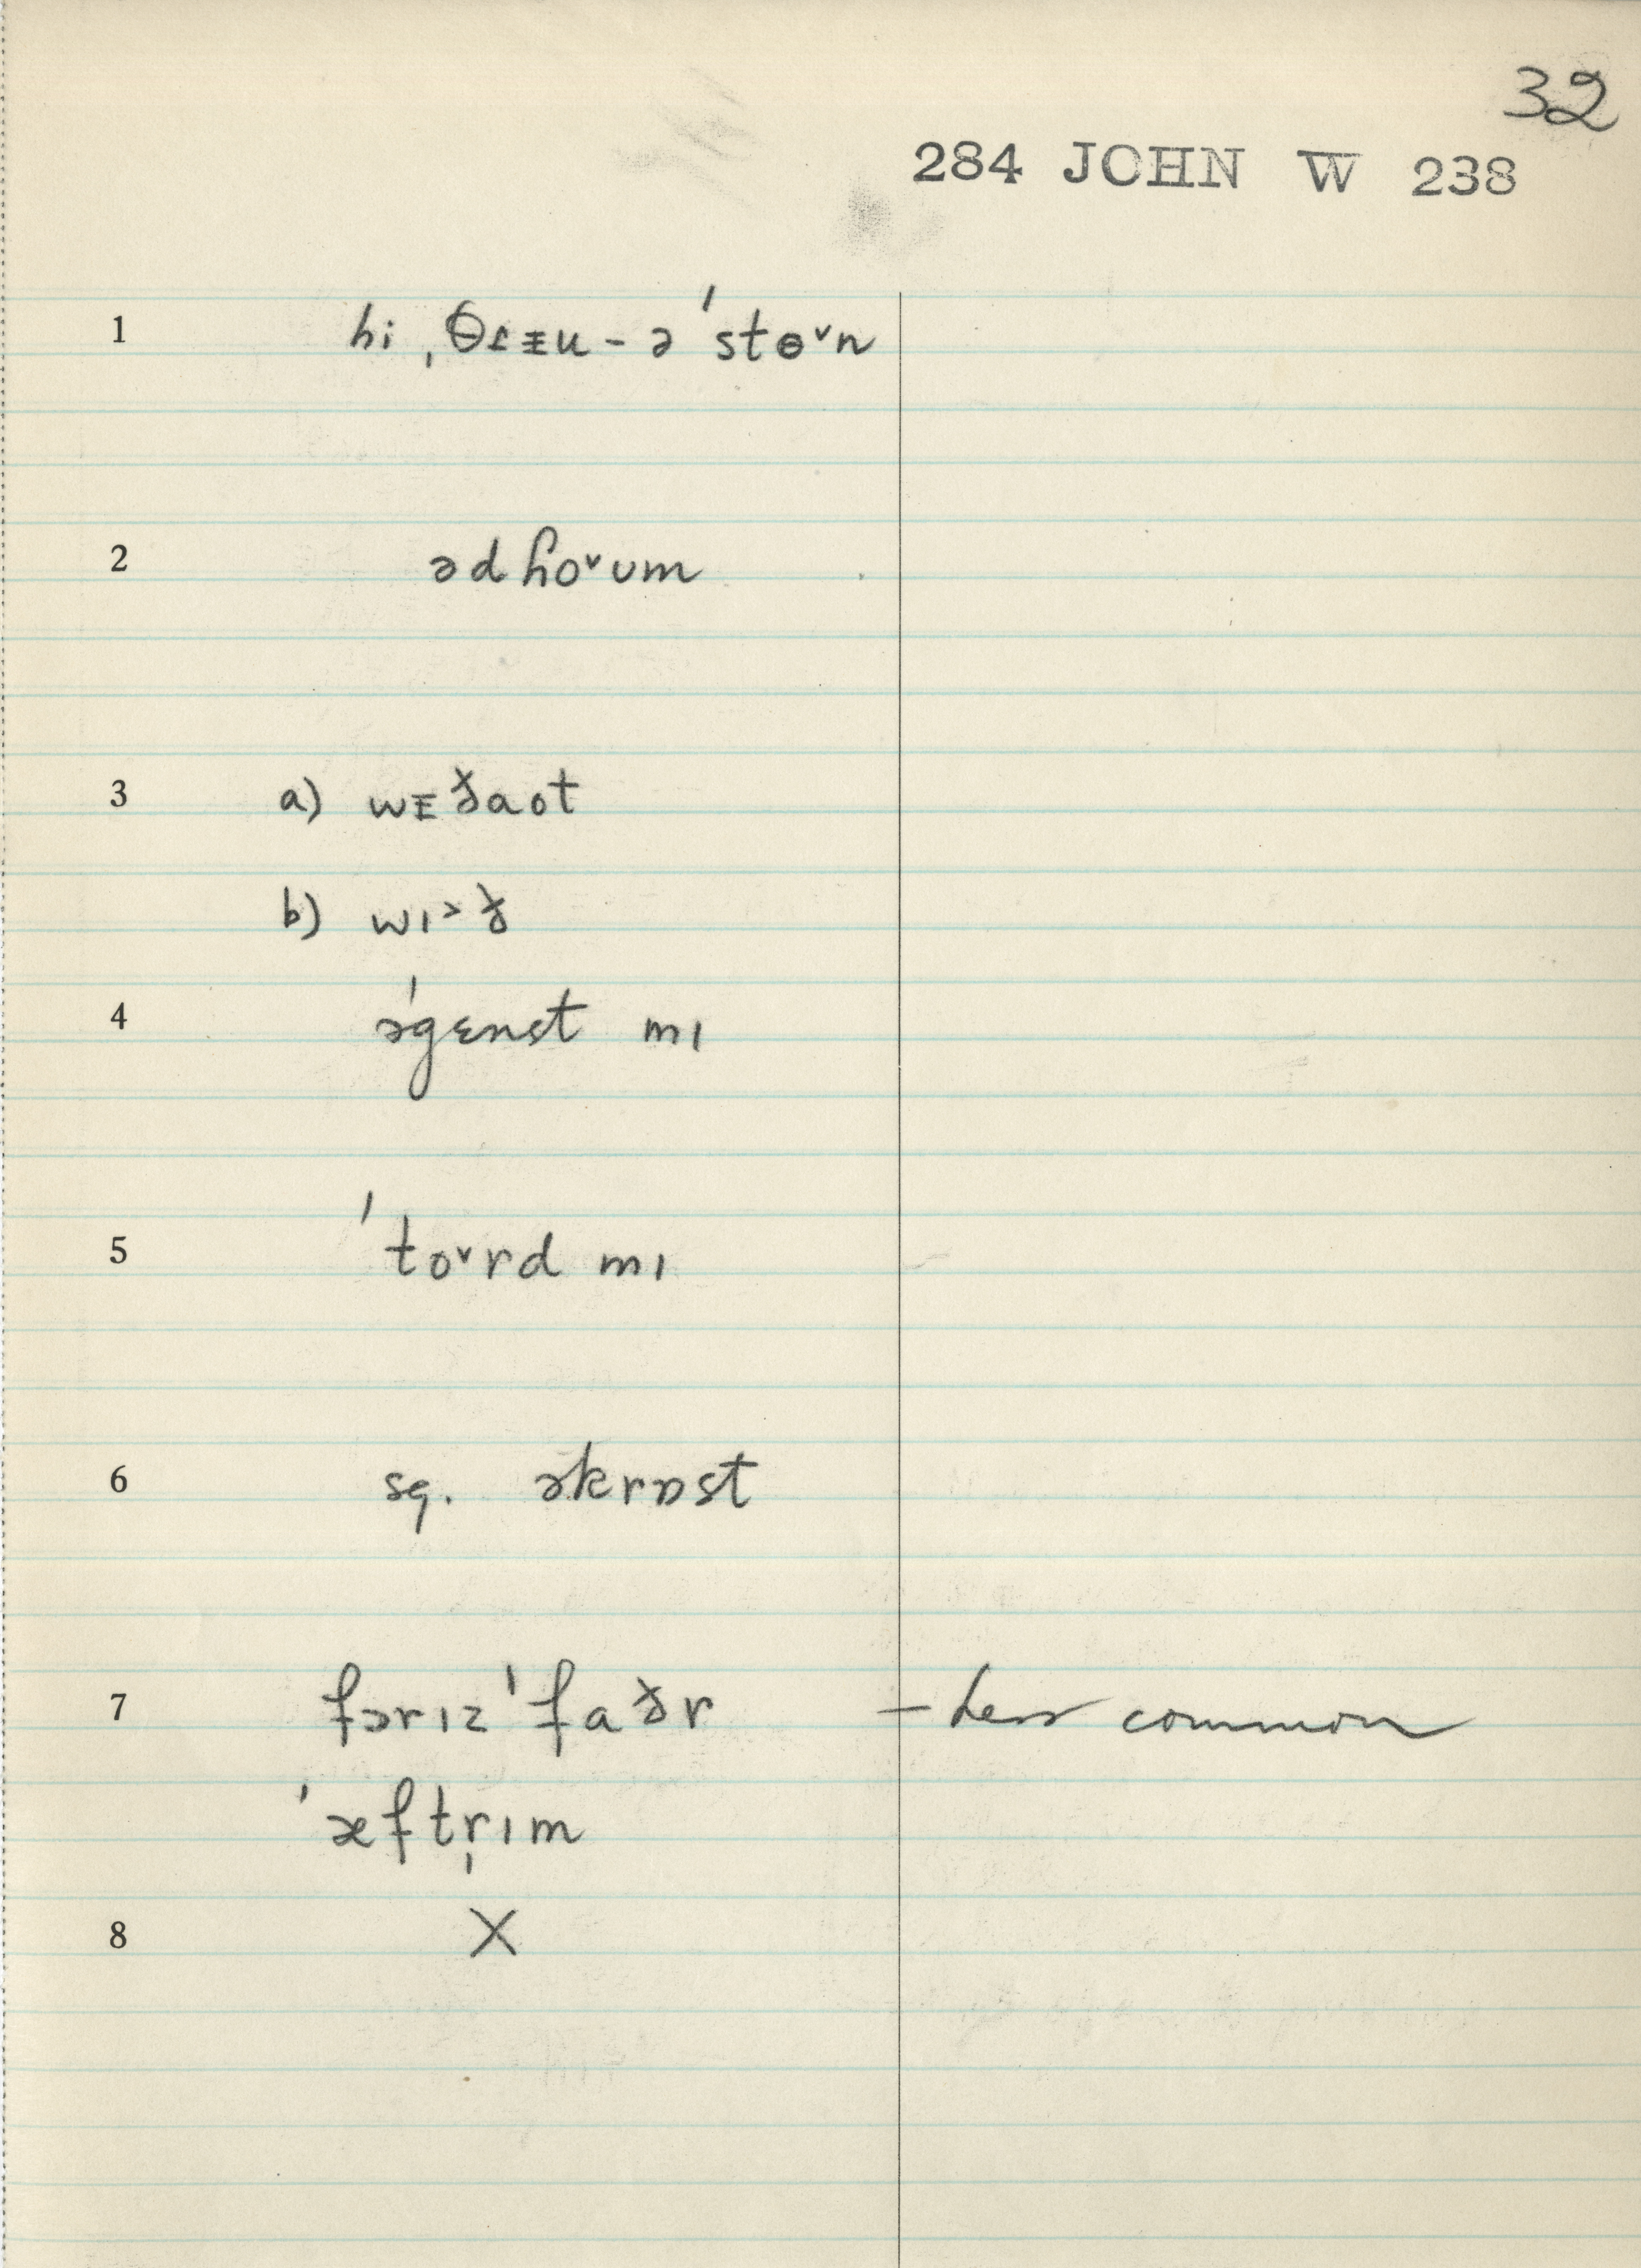 32
284 JOHN W 238
1 hi ˌθɾᵻu - ə ˈstɵ˅n
2 ədɦo˅ʊm
3 a) wᵻðaot
b) wɪ˃ð
4 əˈgɛnst mɪ
5 ˈto˅rd mɪ
6 sq. əkrɒst
7 fərɪzˈfaðr – Less common
ˈæftr̩ɪm
8 X